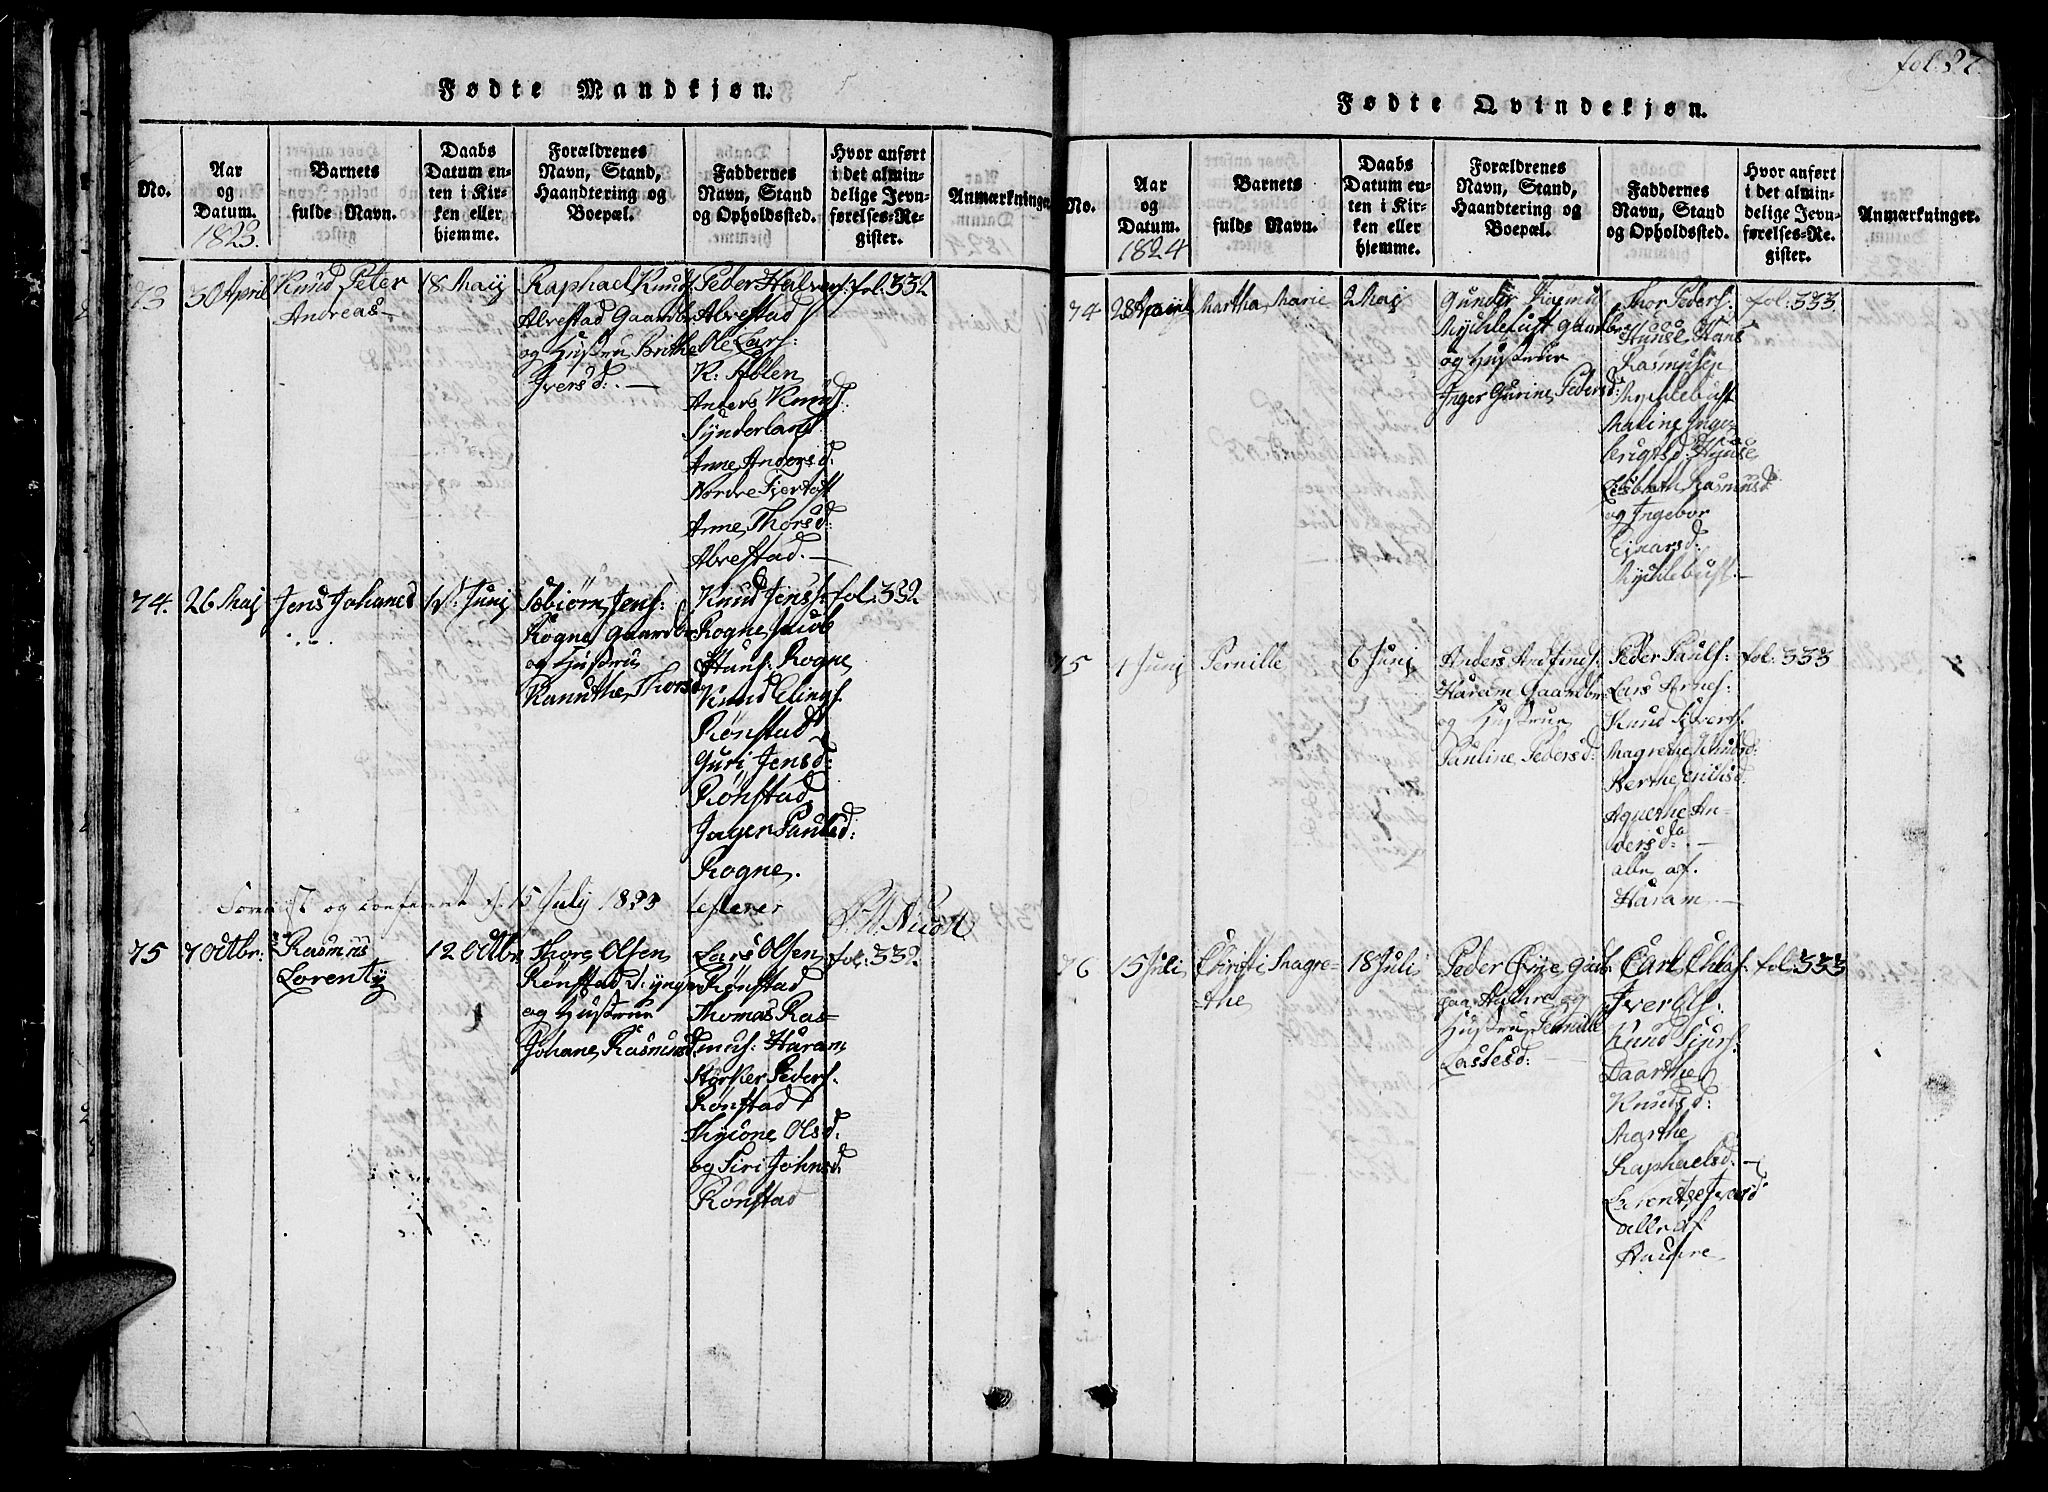 Fødte Mandkjøn.
No.
Aar
og
Datum.
1823.
Barnets
fulde Navn.
Daabs
Datum en-
ten i Kir-
ken eller
hjemme.
Forældrenes
Navn, Stand,
Haandtering og
Boepæl.
Faddernes
Navn, Stand
og Opholdssted.
Hvor anført
i det almin-
delige Jevn-
førelses-Re-
gister.
Anmærkninger
73
30 April
Knud Peter
Andreas
18 Maij
Raphael Knuds:
Alvestad Gaardbr
og Hustru Brithe
Iversd:. —
Peder Halvors:
Alvestad
Ole Lars:
Anders Knuds:
Synderland
Anne Andersd:
Nordre Fjertoft
Anne Thorsd:
Alvestad. —
fol: 332
74.
26 Maj
Jens Johannes
1st. Junj
Sebiørn Jens:
Rogne Gaardbr
og Hustrue
Kanuthe Thorsd
Knud Jens:
Rogne Jacob
Hans: Rogne
Knud Elings:
Rønstad
Guri Jensd:
Rønstad
Inger Paulsd:
Rogne.
fol: 332
og Confereret d: 15 July 1823
75
7 Octbr:
Rasmus
Lorentz
12 Octbr
Thore Olsen
Rønstad d: yngre
og Hustrue
Johane Rasmusd.
Lars Olsen
Rønstad
Thomas Ras-
mus: Haram
Størker Peders:
Rønstad
Olsd:
og Siri Johnsd:
Rønstad
fol: 332.
fol. 37.
Fødte Qvindekjøn.
No.
Aar
og
Datum.
1824
Barnets
fulde Navn.
Daabs
Datum en-
ten i Kir-
ken eller
hjemme.
Forældrenes
Navn, Stand,
Haandtering og
Boepæl.
Faddernes
Navn, Stand
og Opholdssted.
Hvor anført
i det almin-
delige Jevn-
førelses-Re-
gister.
Anmærkninger.
74
28 April
Martha Marie
2 Maj
Gunder Rasmus:
Myklebust Gaardbr
og Hustrue
Inger Gurine Pedersd:
Thor Peders:
Hans
Rasmusen
Myklebust
Maline Inge-
brigtsd:
Lisbeth Rasmusd
og Ingebor
Ejnarsd:
Myklebust. —
fol: 333.
75
1 Junj
Pernille
6 Junj
Anders Andfinds:
Haram Gaardbr
og Hustrue
Pauline Pedersd:
Peder Pauls:
Lars Arnes:
Knud Siverts:
Magrethe Knudsd:
Berthe
Agnethe An-
dersd:. —
alle af
Haram —
fol: 333
76
15 Juli
Christi Magre-
the
18 Juli
Peder
paa og
Hustrue Pernille
Lassesd: —
Carl
Iver Ols:
Knud
Daarthe
Knudsd:
Marthe
Raphaelsd. —
Lorentse Iversd
alle af
fol: 333